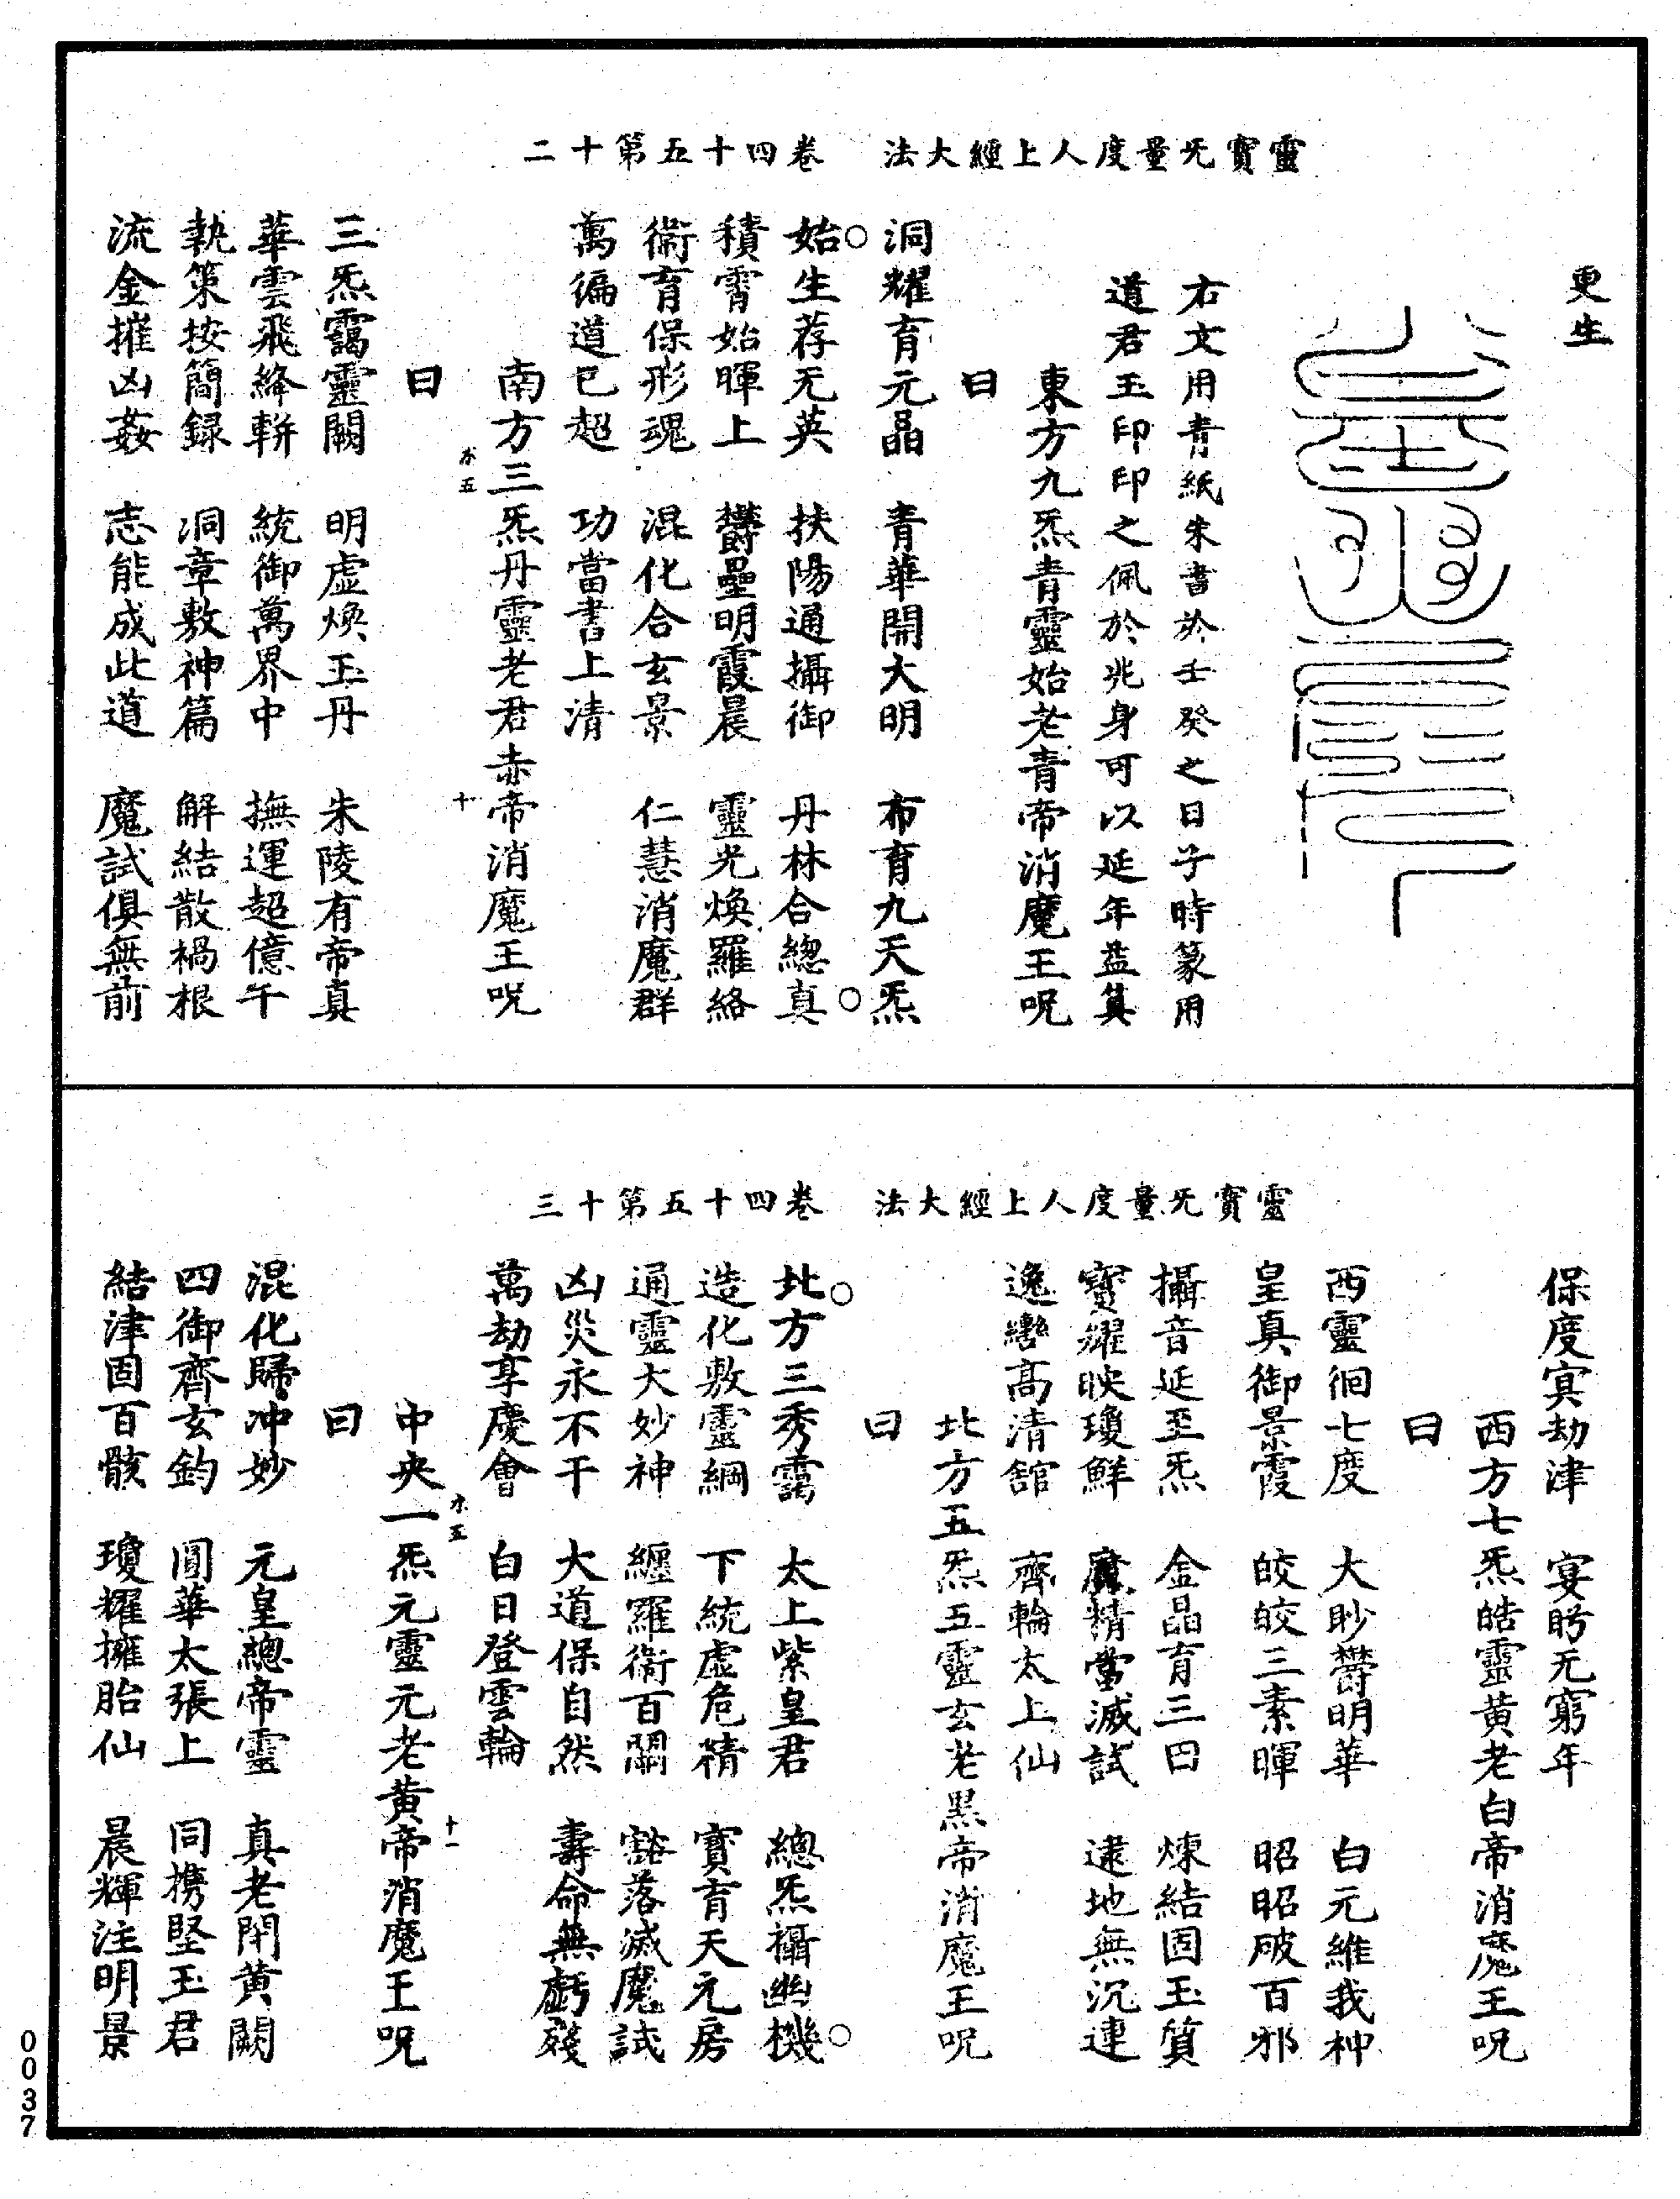 靈寶无量度人上經大法　卷四十五第十二
更生
右文用青紙朱書於壬癸之日子時篆用
道君玉印印之佩於兆身可以延年益筭
東方九炁青靈始老青帝消魔王呪
曰
洞耀育元晶　青華開大明　布育九天炁
始生荐无英　扶陽通攝御　丹林合總真
積霄始暉上　欝壘明霞晨　靈光煥羅絡
衛育保形魂　混化合玄景　仁慧消魔群
萬徧道已超　功當書上清
南方三炁丹靈老君赤帝消魔王呪
木五　十
曰
三炁靄靈闕　明虛煥玉丹　朱陵有帝真
華雲飛絳軿　統御萬界中　撫運超億午
執策按簡録　洞章敷神篇　解結散禍根
流金摧凶姦　志能成此道　魔試俱無前
靈寶无量度人上經大法　卷四十五第十三
保度寘劫津　宴眄无窮年
西方七炁皓靈黄老白帝消魔王呪
曰
西靈徊七度　大眇欝明華　白元維我神
皇真御景霞　皎皎三素暉　昭昭破百邪
攝音延至炁　金晶育三田　煉結固玉質
寶耀映瓊鮮　魔精當滅試　逮地無沉連
逸轡高清舘　齊輪太上仙
北方五炁五靈玄老黑帝消魔王呪
曰
北方三秀靄　太上紫皇君　總炁攝幽機
造化敷靈綱　下統虛危精　寳育天元房
通靈大妙神　纏羅衛百關　豁落滅魔試
凶災永不干　大道保自然　壽命無虧殘
萬劫享慶會　白日登雲輪
中央一炁元靈元老黄帝消魔王呪
木五　十一
曰
混化歸冲妙　元皇總帝靈　真老開黄闕
四御齊玄鈞　圓華太張上　同携堅玉君
結津固百骸　瓊耀擁胎仙　晨輝注明景
0037